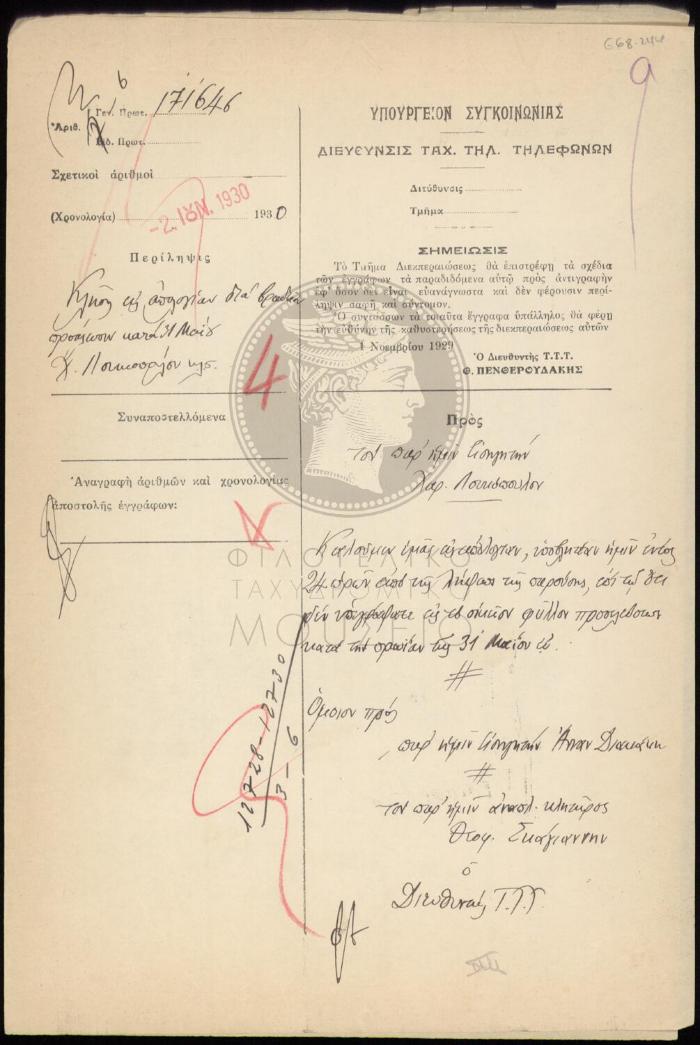 668-244
9
6
Γεν. Πρωτ. 171646
Ἀριθ.
Εἰδ. Πρωτ.
Σχετικοὶ ἀριθμοὶ
-2. ΙΟΥΝ. 1930
(Χρονολογία) 1930
Περίληψις
Κλῆσις εἰς ἀπολογίαν διὰ βραδεῖαν
προσέλευσιν κατὰ 31 Μαΐου
Χ. κλπ.
4
Συναποστελλόμενα
Ἀναγραφὴ ἀριθμῶν καὶ χρονολογίας
ἀποστολῆς ἐγγράφων:
12728-12730
3-6
ΥΠΟΥΡΓΕΙΟΝ ΣΥΓΚΟΙΝΩΝΙΑΣ
ΔΙΕΥΘΥΝΣΙΣ ΤΑΧ. ΤΗΛ. ΤΗΛΕΦΩΝΩΝ
Διεύθυνσις
Τμῆμα
ΣΗΜΕΙΩΣΙΣ
Τὸ Τμῆμα Διεκπεραιώσεως θὰ ἐπιστρέφῃ τὰ σχέδια
τῶν ἐγγράφων τὰ παραδιδόμενα αὐτῷ πρὸς ἀντιγραφὴν
ἐφ' ὅσον δὲν εἶναι εὐανάγνωστα καὶ δὲν φέρουσιν περί-
ληψιν σαφῆ καὶ σύντομον.
Ὁ συντάσσων τὰ τοιαῦτα ἔγγραφα ὑπάλληλος θὰ φέρῃ
τὴν εὐθύνην τῆς καθυστερήσεως τῆς διεκπεραιώσεως αὐτῶν
1 Νοεμβρίου 1929
Ὁ Διευθυντὴς Τ.Τ.Τ.
Θ. ΠΕΝΘΕΡΟΥΔΑΚΗΣ
Πρὸς
τὸν παρ' ἡμῖν Εἰσηγητὴν
Χαρ.
Καλοῦμεν ὑμᾶς εἰς ἀπολογίαν, ὑποβλητέαν ἡμῖν ἐντὸς
24 ὡρῶν ἀπὸ τῆς λήψεως τῆς παρούσης, ἐπὶ τῷ ὅτι
δὲν ὑπεγράψατε εἰς τὸ οἰκεῖον φύλλον προσελεύσεως
κατὰ τὴν πρωΐαν τῆς 31 Μαΐου
Ὅμοιον πρὸς
παρ' ἡμῖν Εἰσηγητὴν
τὸν παρ' ἡμῖν ἀναπλ. κλητῆρος
Θεοφ. Σκάγιαννην
ὁ
Διευθυντὴς Τ.Τ.Τ.
ΦΙΛΟΤΕΛΙΚΟ
ΤΑΧΥΔΡΟΜΙΚΟ
ΜΟΥΣΕΙΟ